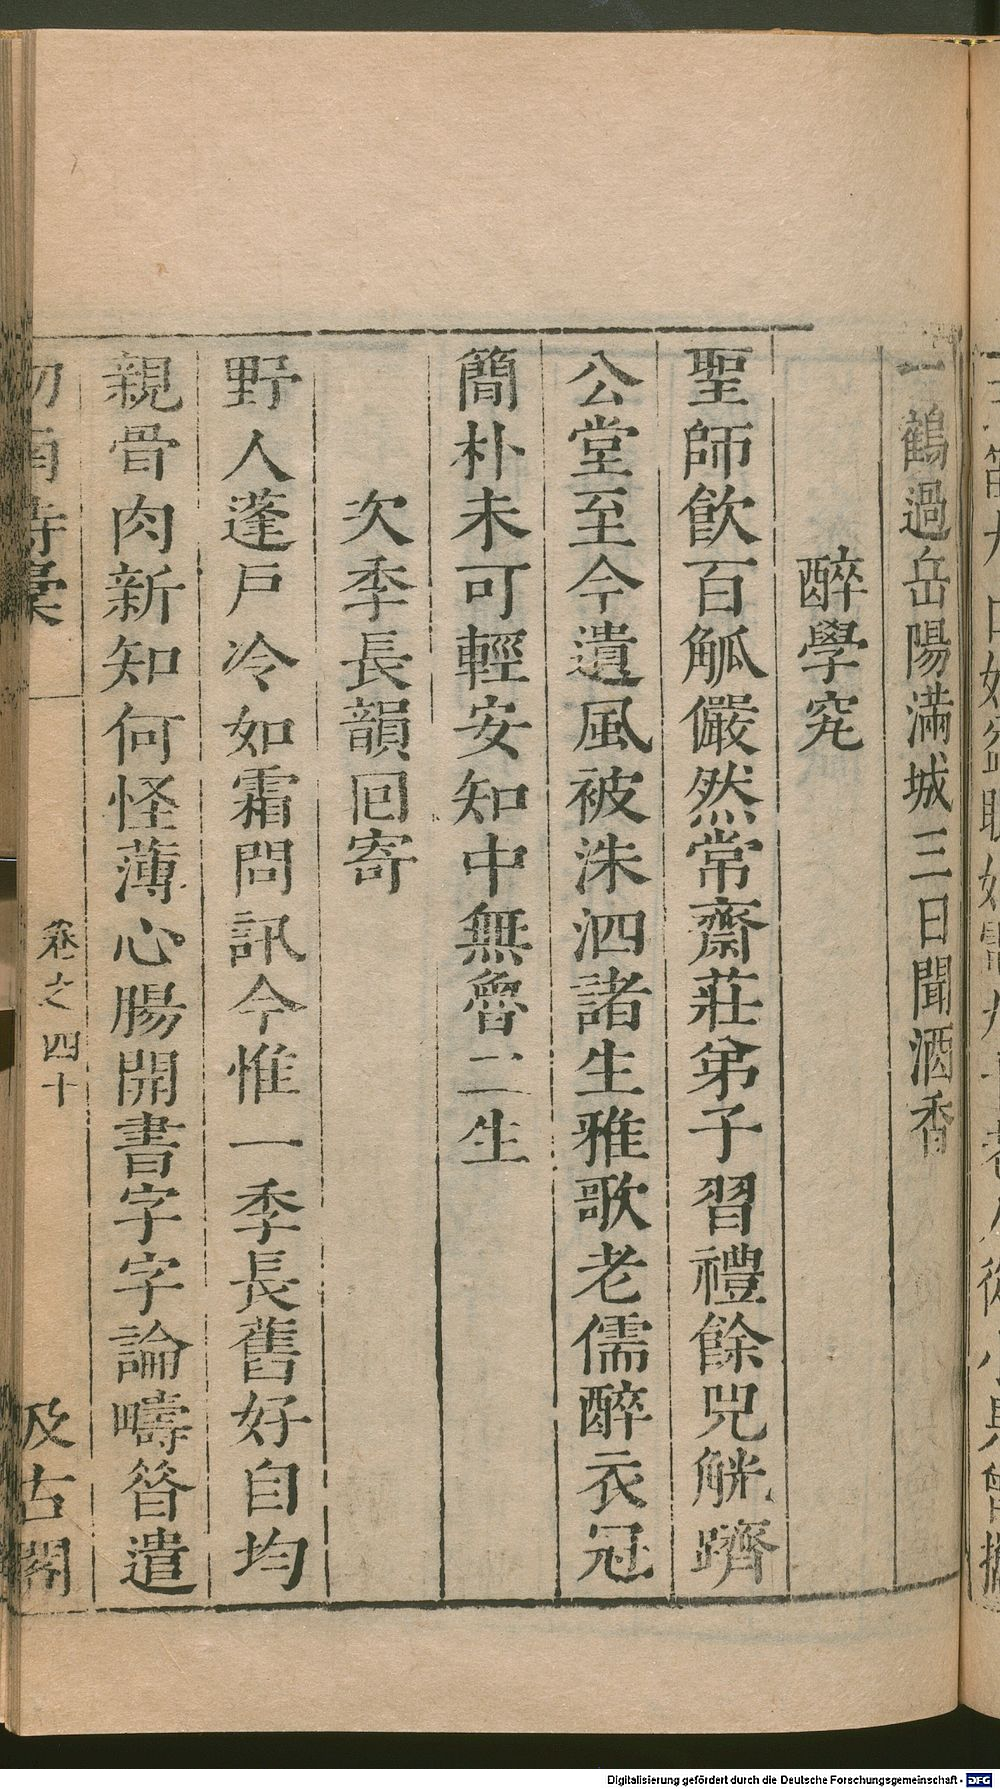 一鶴過岳陽滿城三日聞酒香
醉學究
聖師飲百觚儼然常齋莊弟子習禮餘兕觥躋
公堂至今遺風被洙泗諸生雅歌老儒醉衣冠
簡朴未可輕安知中無魯二生
次季長韻囘寄
野人蓬戶冷如霜問訊今惟一季長舊好自均
親骨肉新知何怪薄心腸開書字字論疇昝遣
劒南詩稾
卷之四十
汲古閣
Digitalisierung gefördert durch die Deutsche Forschungsgemeinschaft - DFG